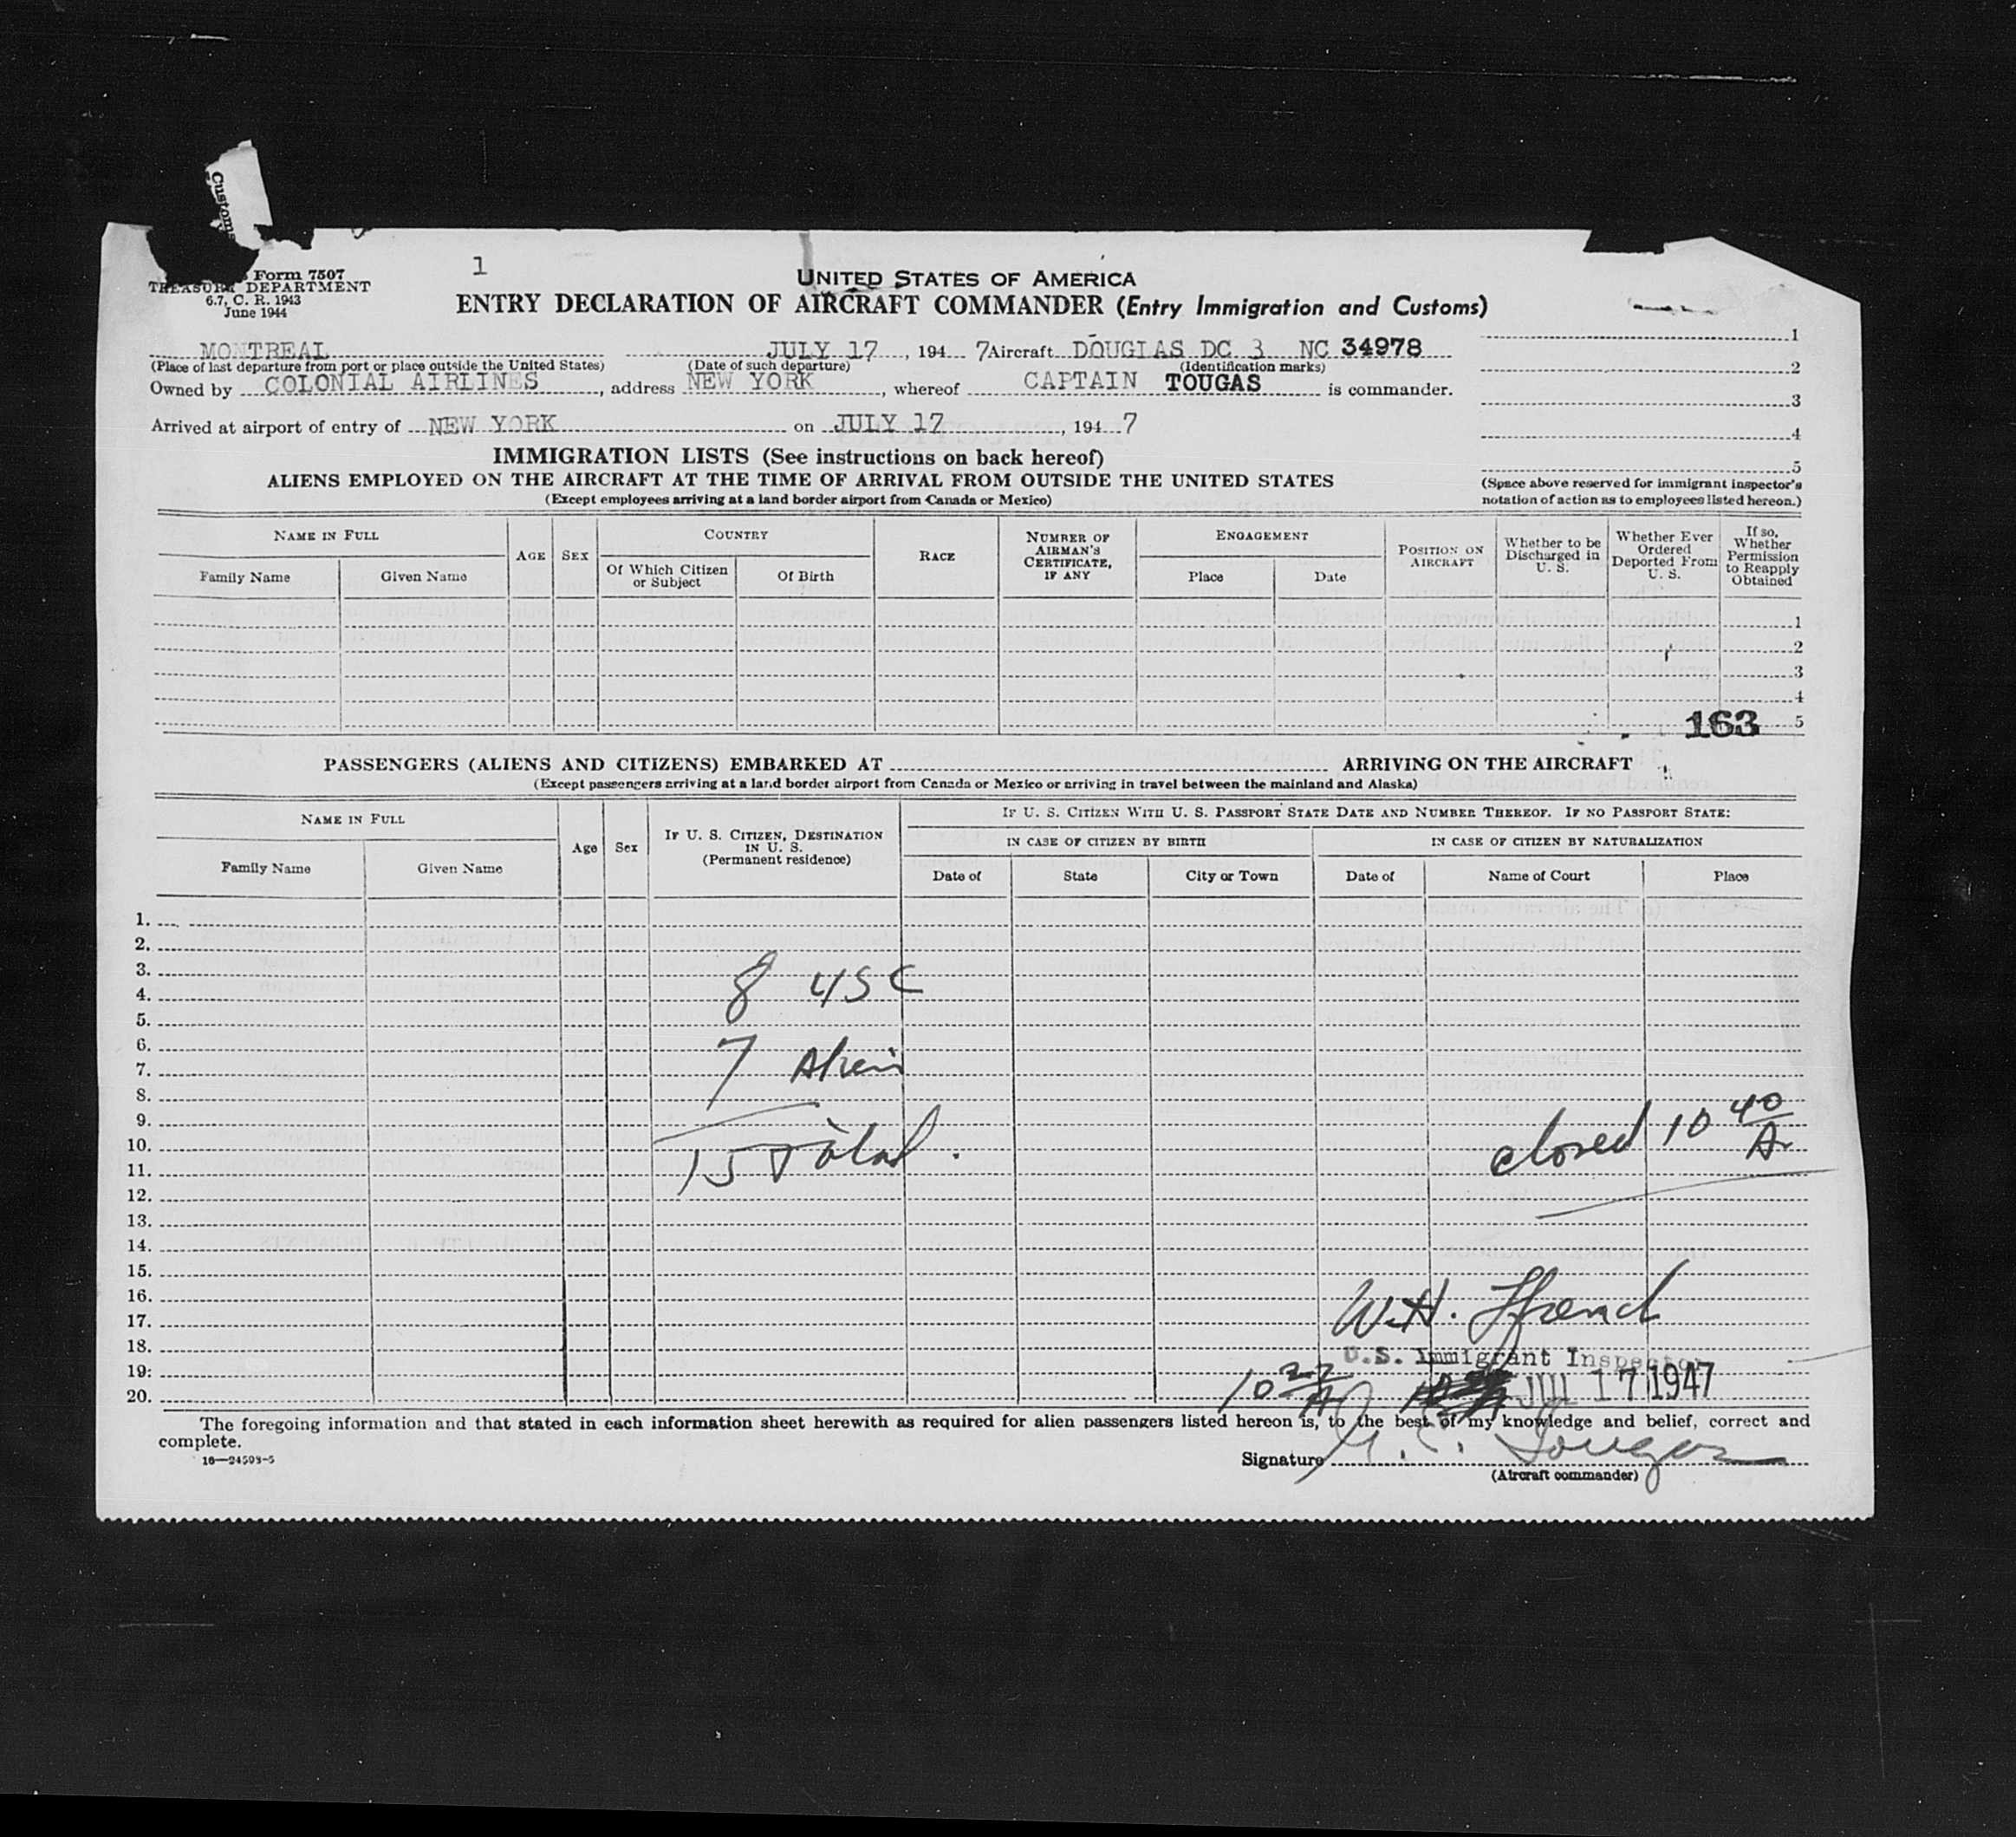 Customs
Form 7507
TREASURY DEPARTMENT
6.7, C. R. 1943
June 1944
1
UNITED STATES OF AMERICA
ENTRY DECLARATION OF AIRCRAFT COMMANDER (Entry Immigration and Customs)
MONTREAL JULY 17, 1947 Aircraft DOUGLAS DC 3 NC 34978
(Place of last departure from port or place outside the United States) (Date of such departure) (Identification marks)
Owned by COLONIAL AIRLINES, address NEW YORK, whereof CAPTAIN TOUGAS is commander.
Arrived at airport of entry of NEW YORK on JULY 17, 1947
1
2
3
4
5
(Space above reserved for immigrant inspector's notation of action as to employees listed hereon.)
IMMIGRATION LISTS (See instructions on back hereof)
ALIENS EMPLOYED ON THE AIRCRAFT AT THE TIME OF ARRIVAL FROM OUTSIDE THE UNITED STATES
(Except employees arriving at a land border airport from Canada or Mexico)
NAME IN FULL
Family Name Given Name
AGE SEX
COUNTRY
Of Which Citizen or Subject Of Birth
RACE
NUMBER OF AIRMAN'S CERTIFICATE, IF ANY
ENGAGEMENT
Place Date
POSITION ON AIRCRAFT
Whether to be Discharged in U. S.
Whether Ever Ordered Deported From U. S.
If so, Whether Permission to Reapply Obtained
1
2
3
4
5
163
PASSENGERS (ALIENS AND CITIZENS) EMBARKED AT ARRIVING ON THE AIRCRAFT
(Except passengers arriving at a land border airport from Canada or Mexico or arriving in travel between the mainland and Alaska)
NAME IN FULL
Family Name Given Name
Age Sex
IF U. S. CITIZEN, DESTINATION IN U. S. (Permanent residence)
IF U. S. CITIZEN WITH U. S. PASSPORT STATE DATE AND NUMBER THEREOF. IF NO PASSPORT STATE:
IN CASE OF CITIZEN BY BIRTH IN CASE OF CITIZEN BY NATURALIZATION
Date of State City or Town Date of Name of Court Place
1.
2.
3.
8 USC
4.
5.
6.
7 Alien
7.
8.
9.
closed 10 40 A.
10.
15 Total.
11.
12.
13.
14.
15.
16.
W.H. Ffrend
17.
18.
U.S. Immigrant Inspector
19.
10 27 A JUL 17 1947
20.
The foregoing information and that stated in each information sheet herewith as required for alien passengers listed hereon is, to the best of my knowledge and belief, correct and
complete.
16—24593-5
Signature Tougas
(Aircraft commander)